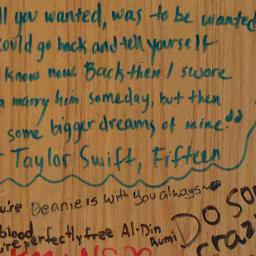 ll you wanted, was to be wanted
could go back and tell yourself
know now. Back then I swore
a marry him someday, but then
some bigger dreams of mine."
- Taylor Swift, Fifteen
u're Beanie is with you always
DO SO
blood
're perfectly free Al-Din
Rumi
crazy